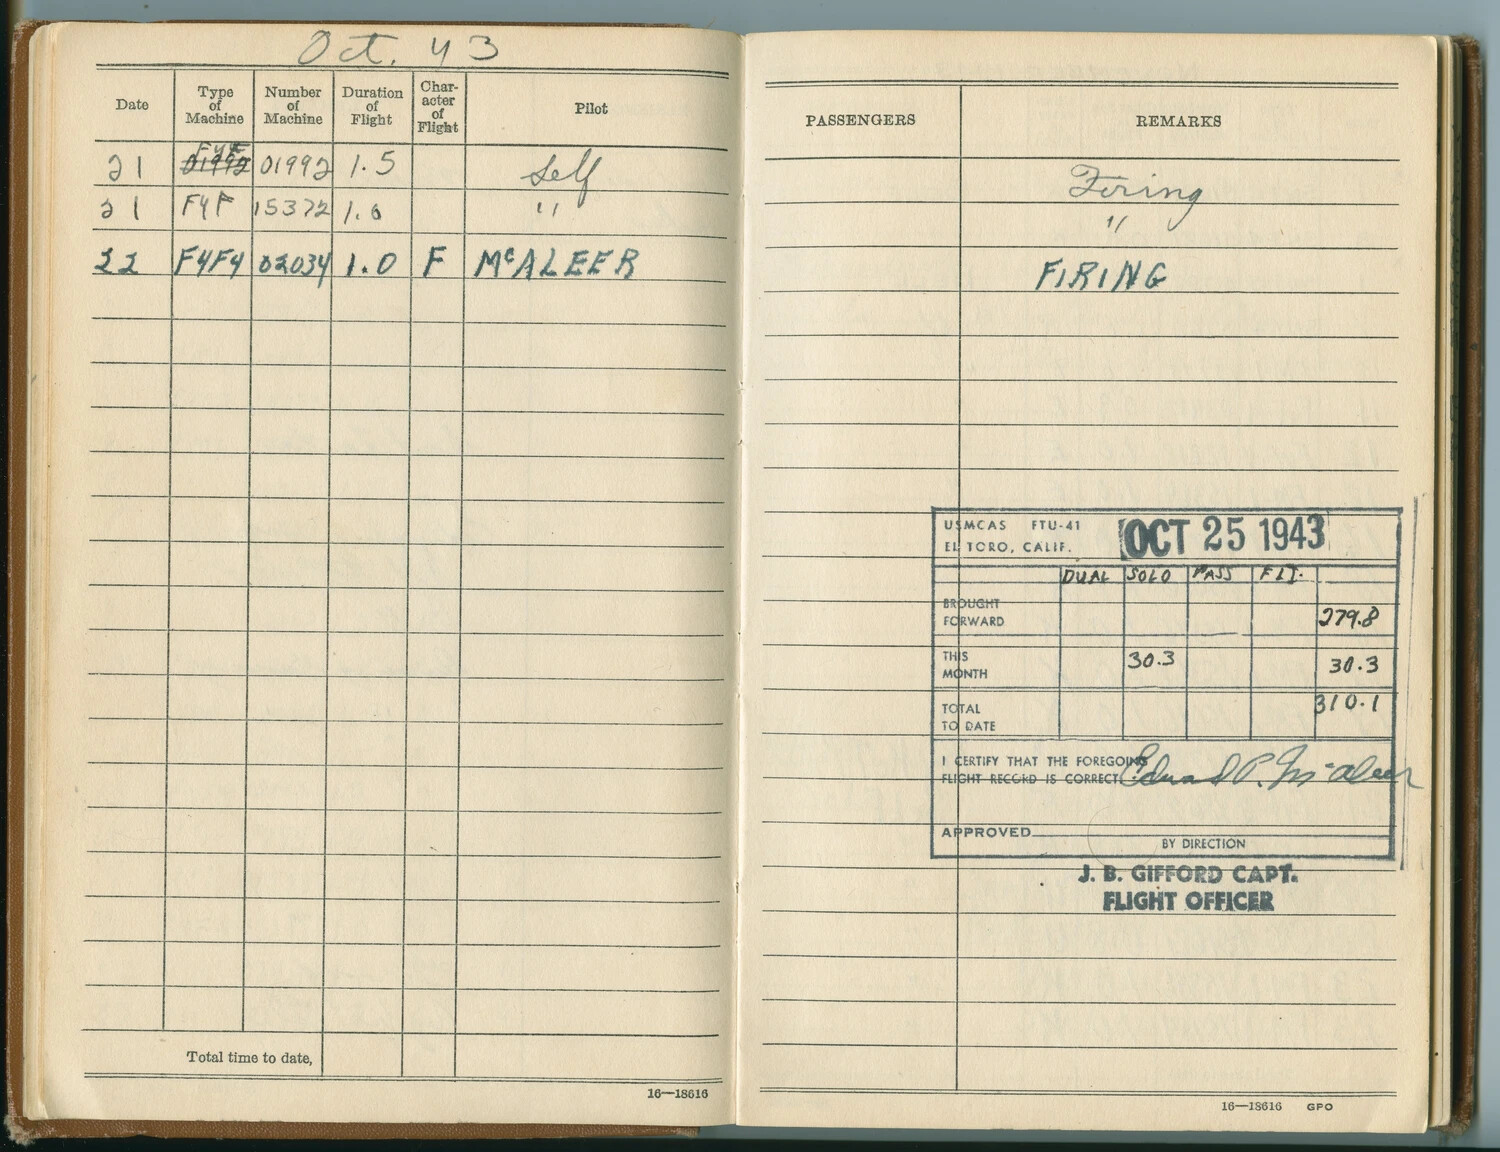 Oct. 43
Date Type of Machine Number of Machine Duration of Flight Char-acter of Flight Pilot
21 F4F 01992 01992 1.5 Self
21 F4F 15372 1.0 "
22 F4F4 02034 1.0 F McALEER
Total time to date,
16—18616
PASSENGERS REMARKS
Firing
"
FIRING
USMCAS FTU-41 OCT 25 1943
EL TORO, CALIF.
DUAL SOLO PASS FLT.
BROUGHT
FORWARD 279.8
THIS
MONTH 30.3 30.3
TOTAL
TO DATE 310.1
I CERTIFY THAT THE FOREGOING
FLIGHT RECORD IS CORRECT Edward P. McAleer
APPROVED
BY DIRECTION
J. B. GIFFORD CAPT.
FLIGHT OFFICER
16—18616 GPO